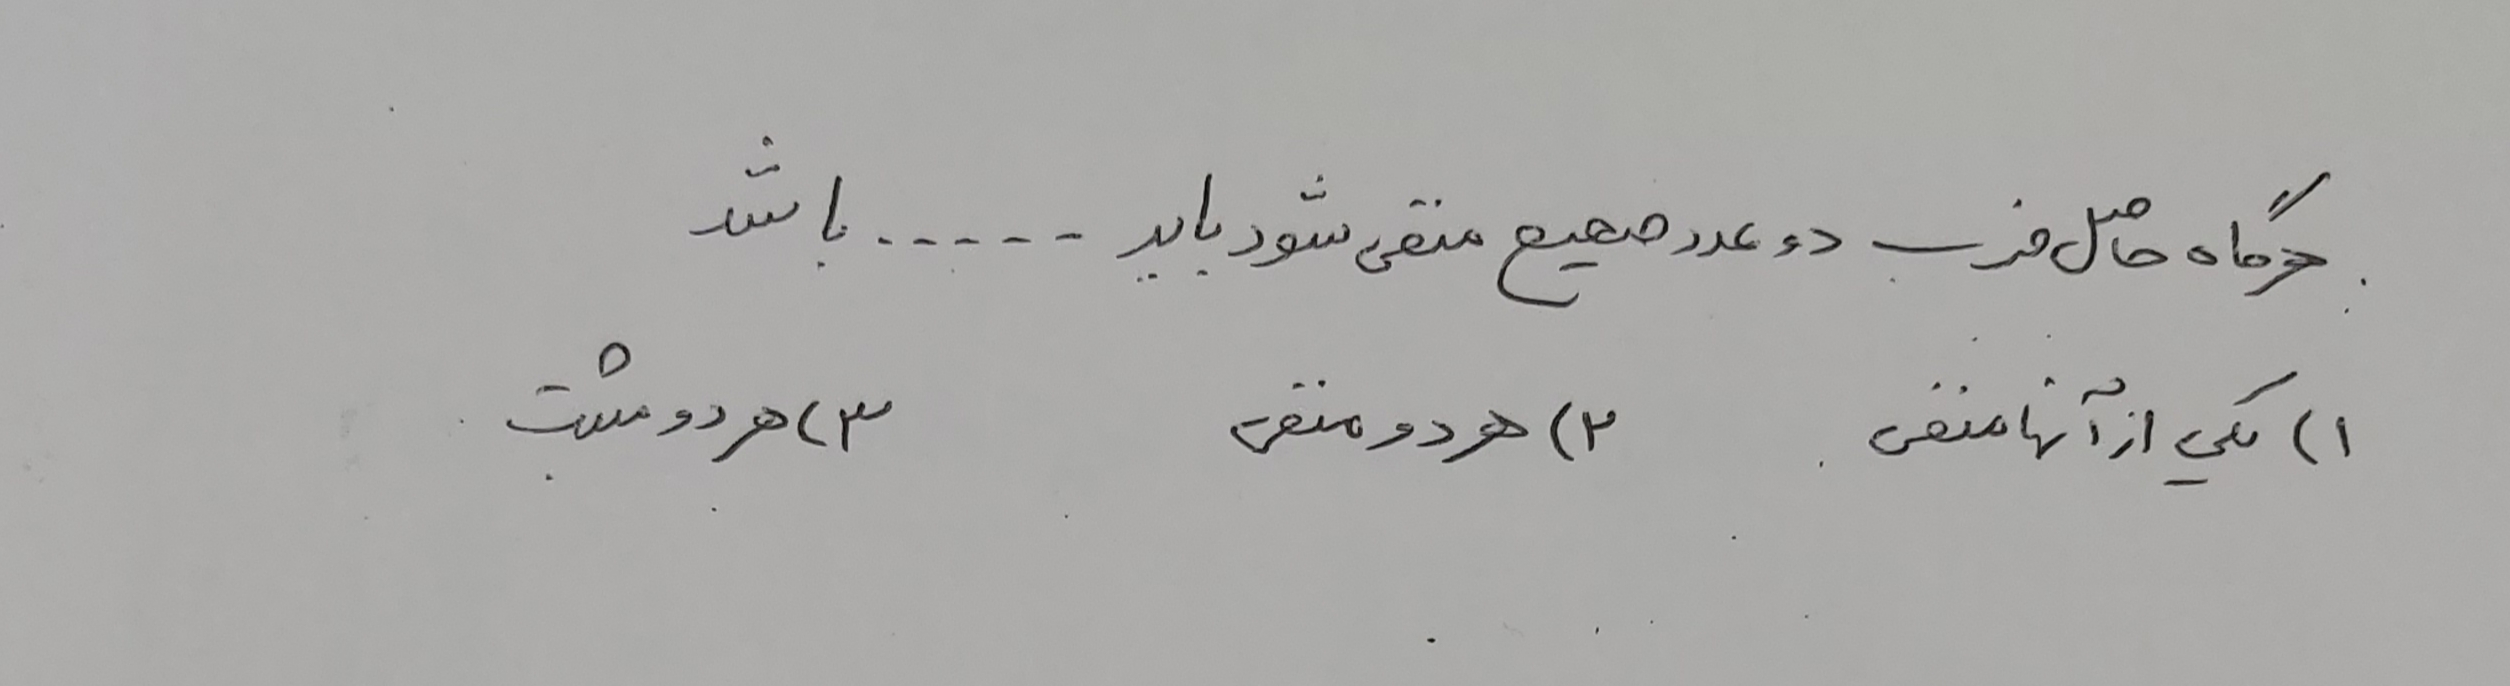 هرگاه حاصل ضرب دو عدد صحیح منفی شود باید ----- باشد
۱) یکی از آنها منفی ۲) هر دو منفی ۳) هر دو مثبت